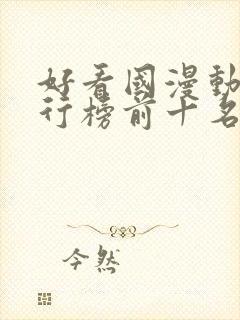 好看國漫動
行榜前十名
今然